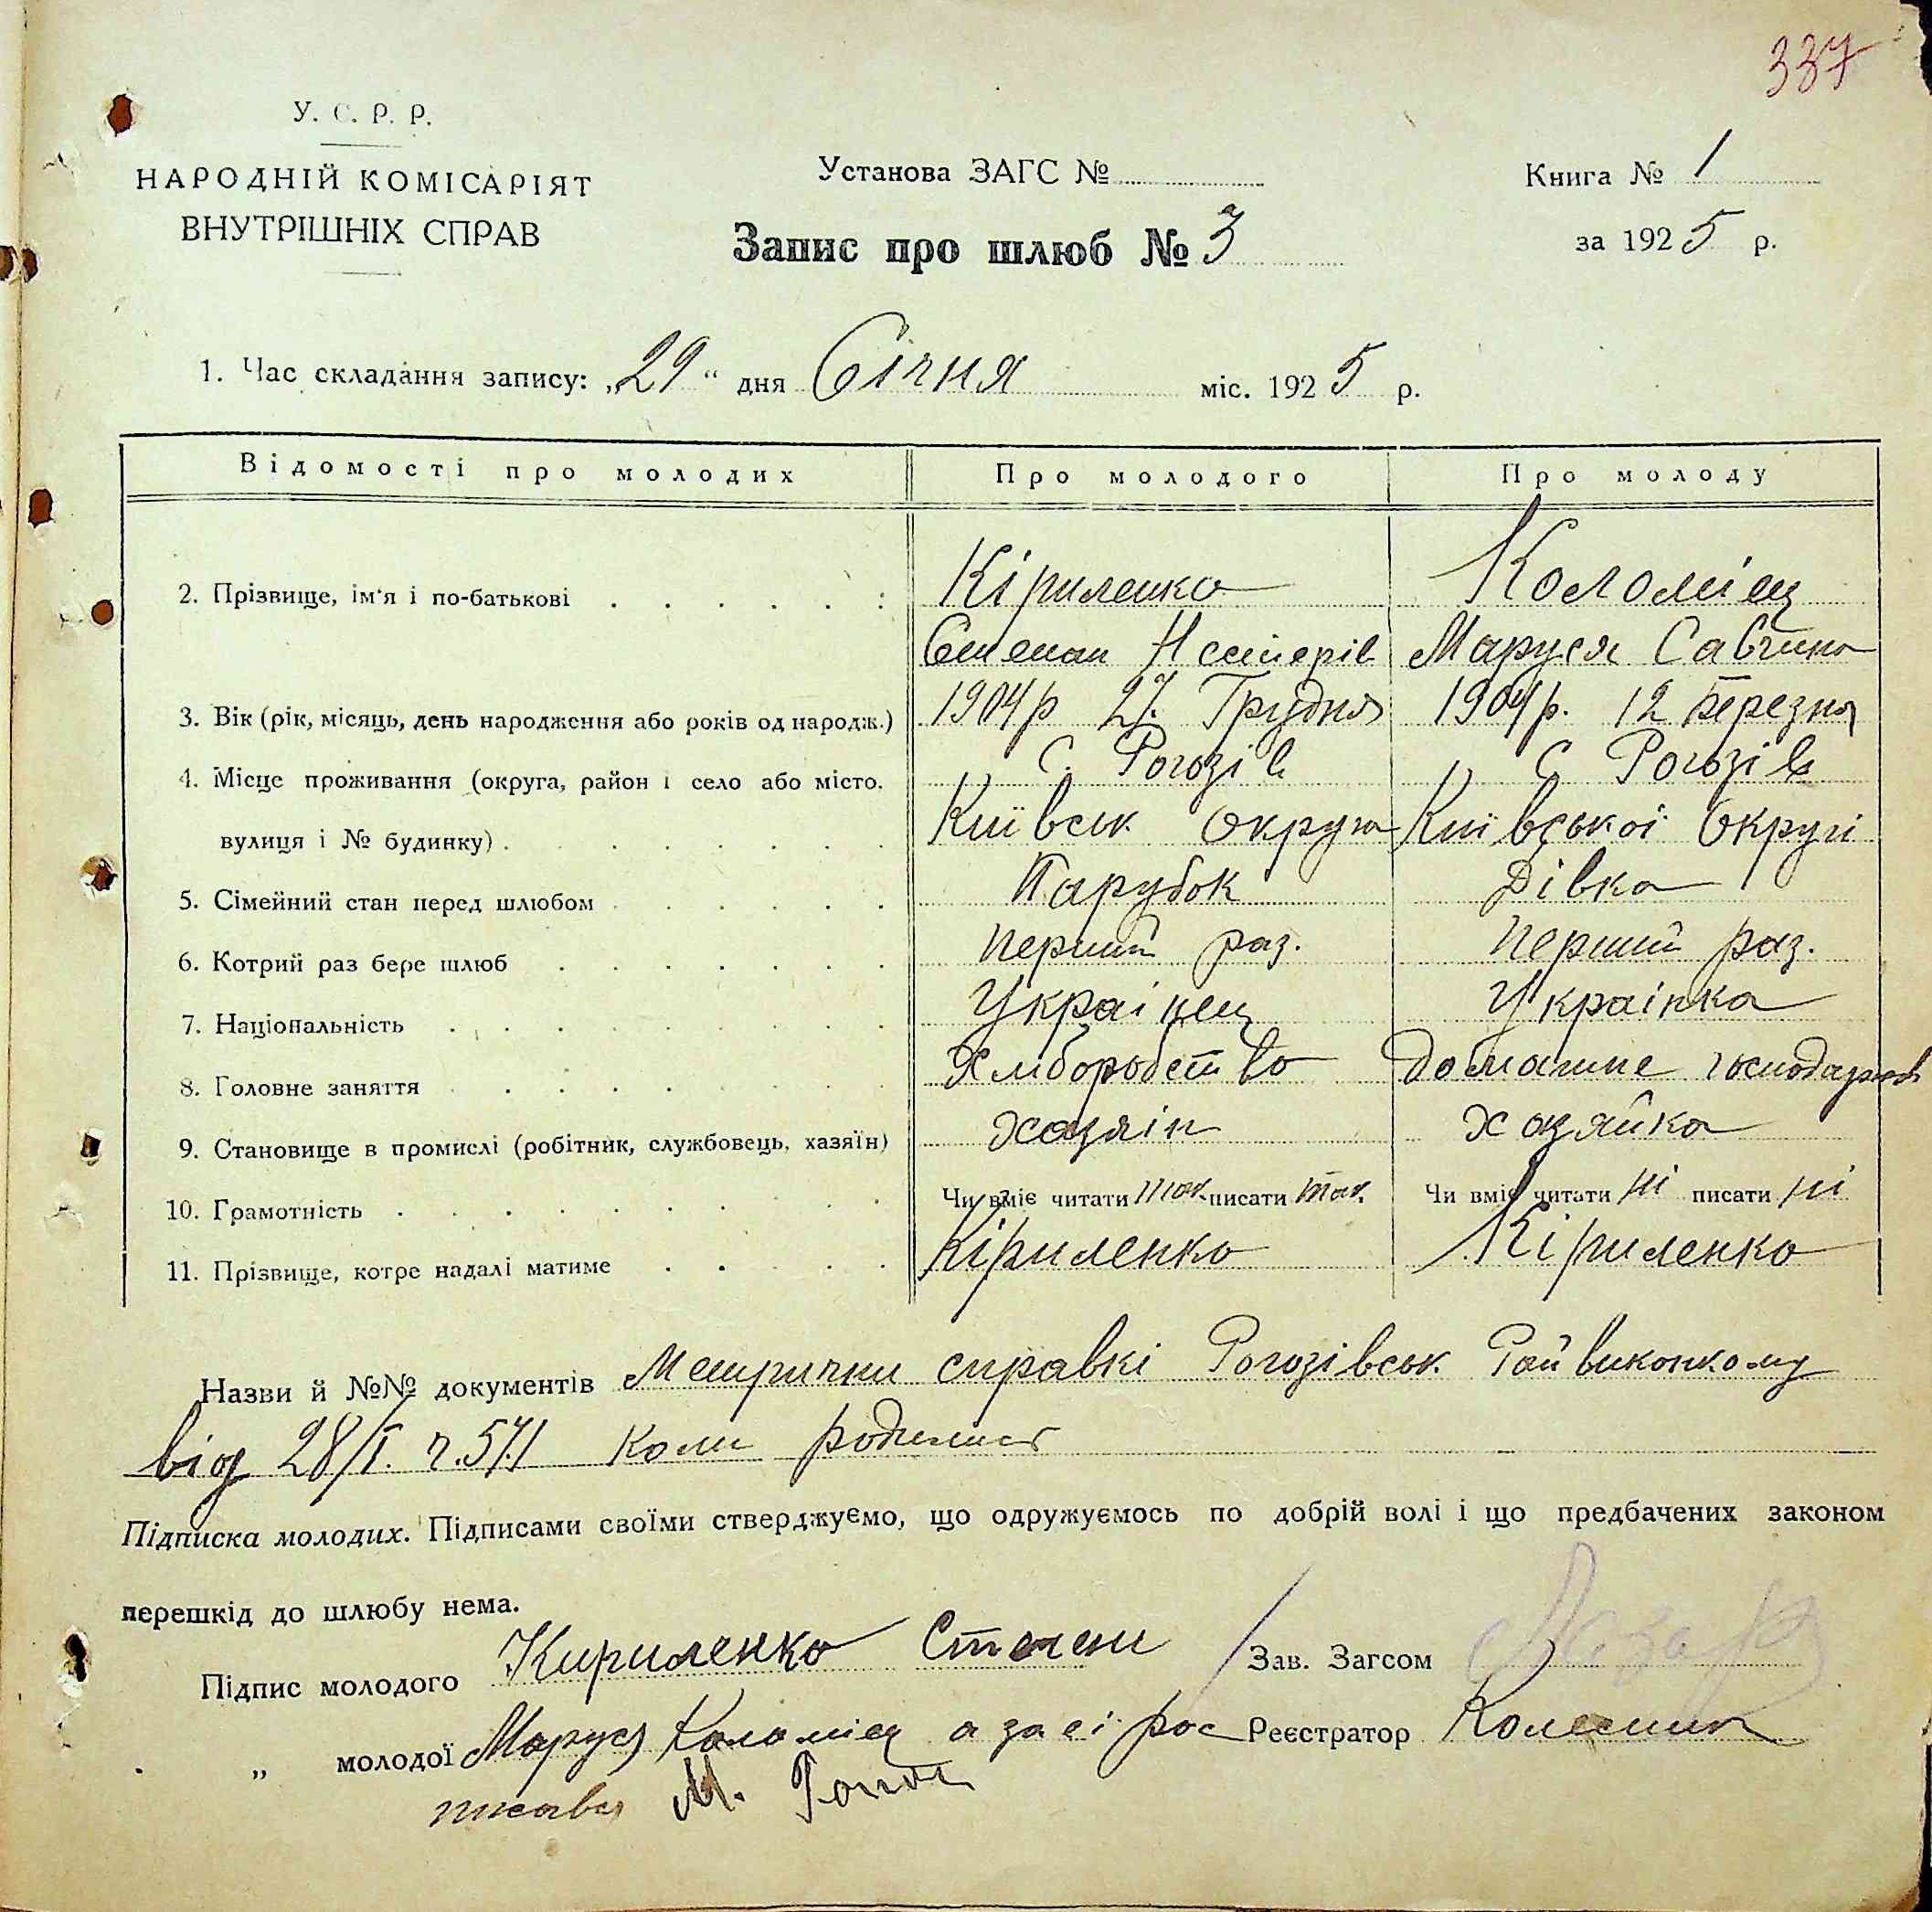 337
У. С. Р. Р.
НАРОДНІЙ КОМІСАРІЯТ
ВНУТРІШНІХ СПРАВ
Установа ЗАГС №
Книга № 1
Запис про шлюб № 3
за 1925 р.
1. Час складання запису: „29“ дня Січня міс. 1925 р.
Відомості про молодих Про молодого Про молоду
2. Прізвище, ім'я і по-батькові Кіриленко Коломієц
Степан Маруся Савчина
3. Вік (рік, місяць, день народження або років од народж.) 1904 р 27. Грудня 1904 р. 12 березня
4. Місце проживання (округа, район і село або місто, С. Рогозів С Рогозів
вулиця і № будинку) Київськ округи Київської Округи
5. Сімейний стан перед шлюбом Парубок Дівка
6. Котрий раз бере шлюб перший раз. перший раз.
7. Національність Українец Українка
8. Головне заняття Хліборобство Домашне
9. Становище в промислі (робітник, службовець, хазяїн) хазяін хазяйка
10. Грамотність Чи вміє читати так писати так. Чи вміє читати ні писати ні
11. Прізвище, котре надалі матиме Кіриленко Кіриленко
Назви й №№ документів Метрични справкі Рогозівськ. Райвиконкому
від 28/I. ч. 571 коли родились
Підписка молодих. Підписами своїми стверджуємо, що одружуємось по добрій волі і що предбачених законом
перешкід до шлюбу нема.
Підпис молодого Кириленко Степан Зав. Загсом
„ молодої Маруся Коломіец а за еі рос Реєстратор Колесник
писався М.